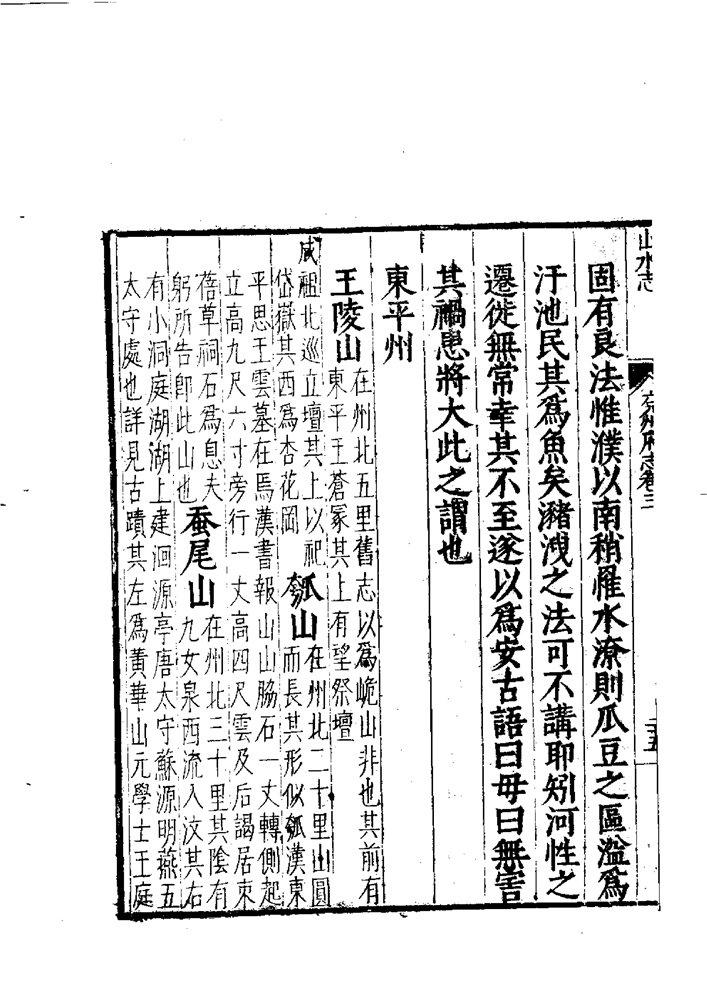 山水志
兖州府志卷三
固有良法惟濮以南稍罹水潦則瓜豆之區溢為
汙池民其為魚矣瀦洩之法可不講耶矧河性之
遷徙無常幸其不至遂以為安古語曰毋曰無害
其禍患將大此之謂也
東平州
王陵山
在州北五里舊志以為嶢山非也其前有
東平王蒼冢其上有望祭壇
咸祖北巡立壇其上以祀
岱嶽其西為杏花岡
瓠山
在州北二十里山圓
而長其形似瓠漢東
平思王雲墓在焉漢書報山山脇石一丈轉側起
立高九尺六寸旁行一丈高四尺雲及后謁居東
蓓草祠石為息夫
躬所告即此山也
蚕尾山
在州北三十里其陰有
九女泉西流入汶其右
有小洞庭湖湖上建洄源亭唐太守蘇源明燕五
太守處也詳見古蹟其左為黄華山元學士王庭